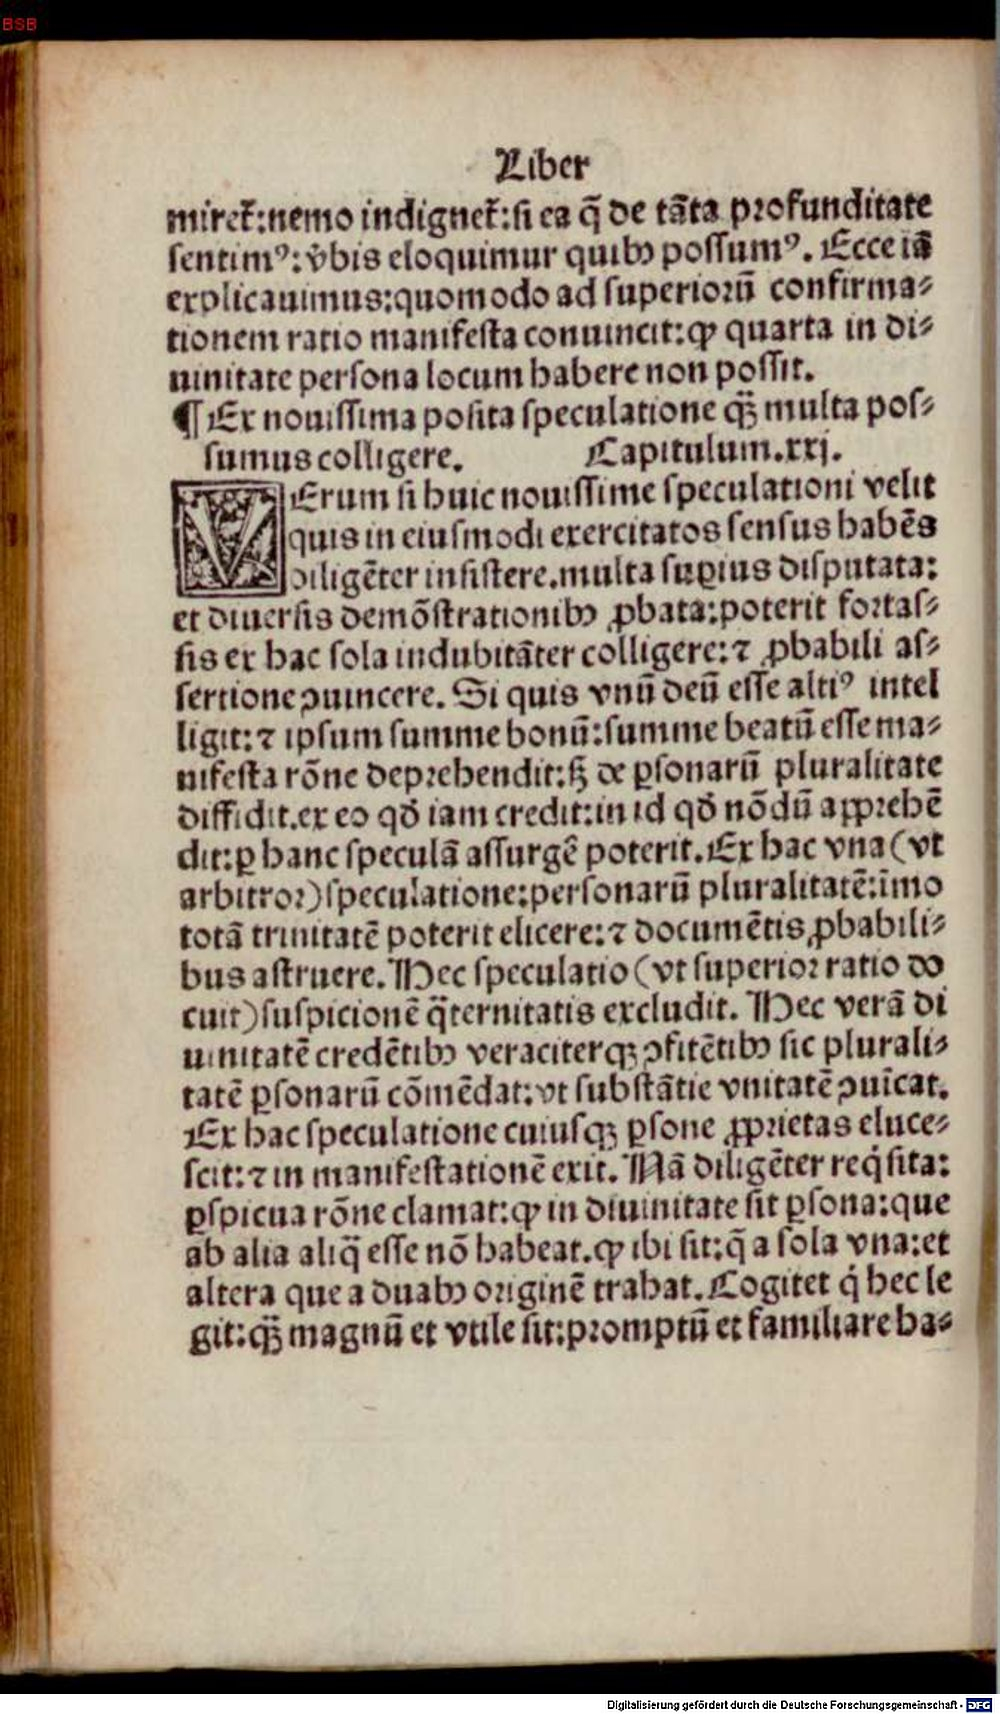 BSB
Liber
miret᷑:nemo indignet᷑:si ea q̃ de tãta profunditate
sentimꝰ:v̾bis eloquimur quibꝫ possumꝰ. Ecce iã
explicauimus:quomodo ad superiorũ confirma⸗
tionem ratio manifesta conuincit:ꝙ quarta in di⸗
uinitate persona locum habere non possit.
¶ Ex nouissima posita speculatione q̃ꝫ multa pos⸗
sumus colligere. Capitulum.xxj.
VErum si huic nouissime speculationi velit
quis in eiusmodi exercitatos sensus habẽs
diligẽter insistere.multa suꝑius disputata:
et diuersis demõstrationibꝫ ꝓbata:poterit fortas⸗
sis ex hac sola indubitãter colligere:⁊ ꝓbabili as⸗
sertione ꝯuincere. Si quis vnũ deũ esse altiꝰ intel
ligit:⁊ ipsum summe bonũ:summe beatũ esse ma⸗
nifesta rõne deprehendit:sꝫ de ꝑsonarũ pluralitate
diffidit.ex eo qđ iam credit:in id qđ nõdũ apprehẽ
dit:ꝑ hanc speculã assurgẽ poterit. Ex hac vna (vt
arbitror) speculatione:personarũ pluralitatẽ:ĩmo
totã trinitatẽ poterit elicere:⁊ documẽtis ꝓbabili⸗
bus astruere. Hec speculatio (vt superior ratio do
cuit) suspicionẽ q̃ternitatis excludit. Hec verã di
uinitatẽ credẽtibꝫ veraciterqꝫ ꝯfitẽtibꝫ sic plurali⸗
tatẽ ꝑsonarũ cõmẽdat:vt substãtie vnitatẽ ꝯuĩcat.
Ex hac speculatione cuiusqꝫ ꝑsone ꝓprietas eluce⸗
scit:⁊ in manifestationẽ exit. Nã diligẽter req̇sita:
ꝑspicua rõne clamat:ꝙ in diuinitate sit ꝑsona:que
ab alia aliq̃ esse nõ habeat.ꝙ ibi sit:q̃ a sola vna:et
altera que a duabꝫ originẽ trahat. Cogitet q̇ hec le
git:q̃ꝫ magnũ et vtile sit:promptũ et familiare ha⸗
Digitalisierung gefördert durch die Deutsche Forschungsgemeinschaft - DFG